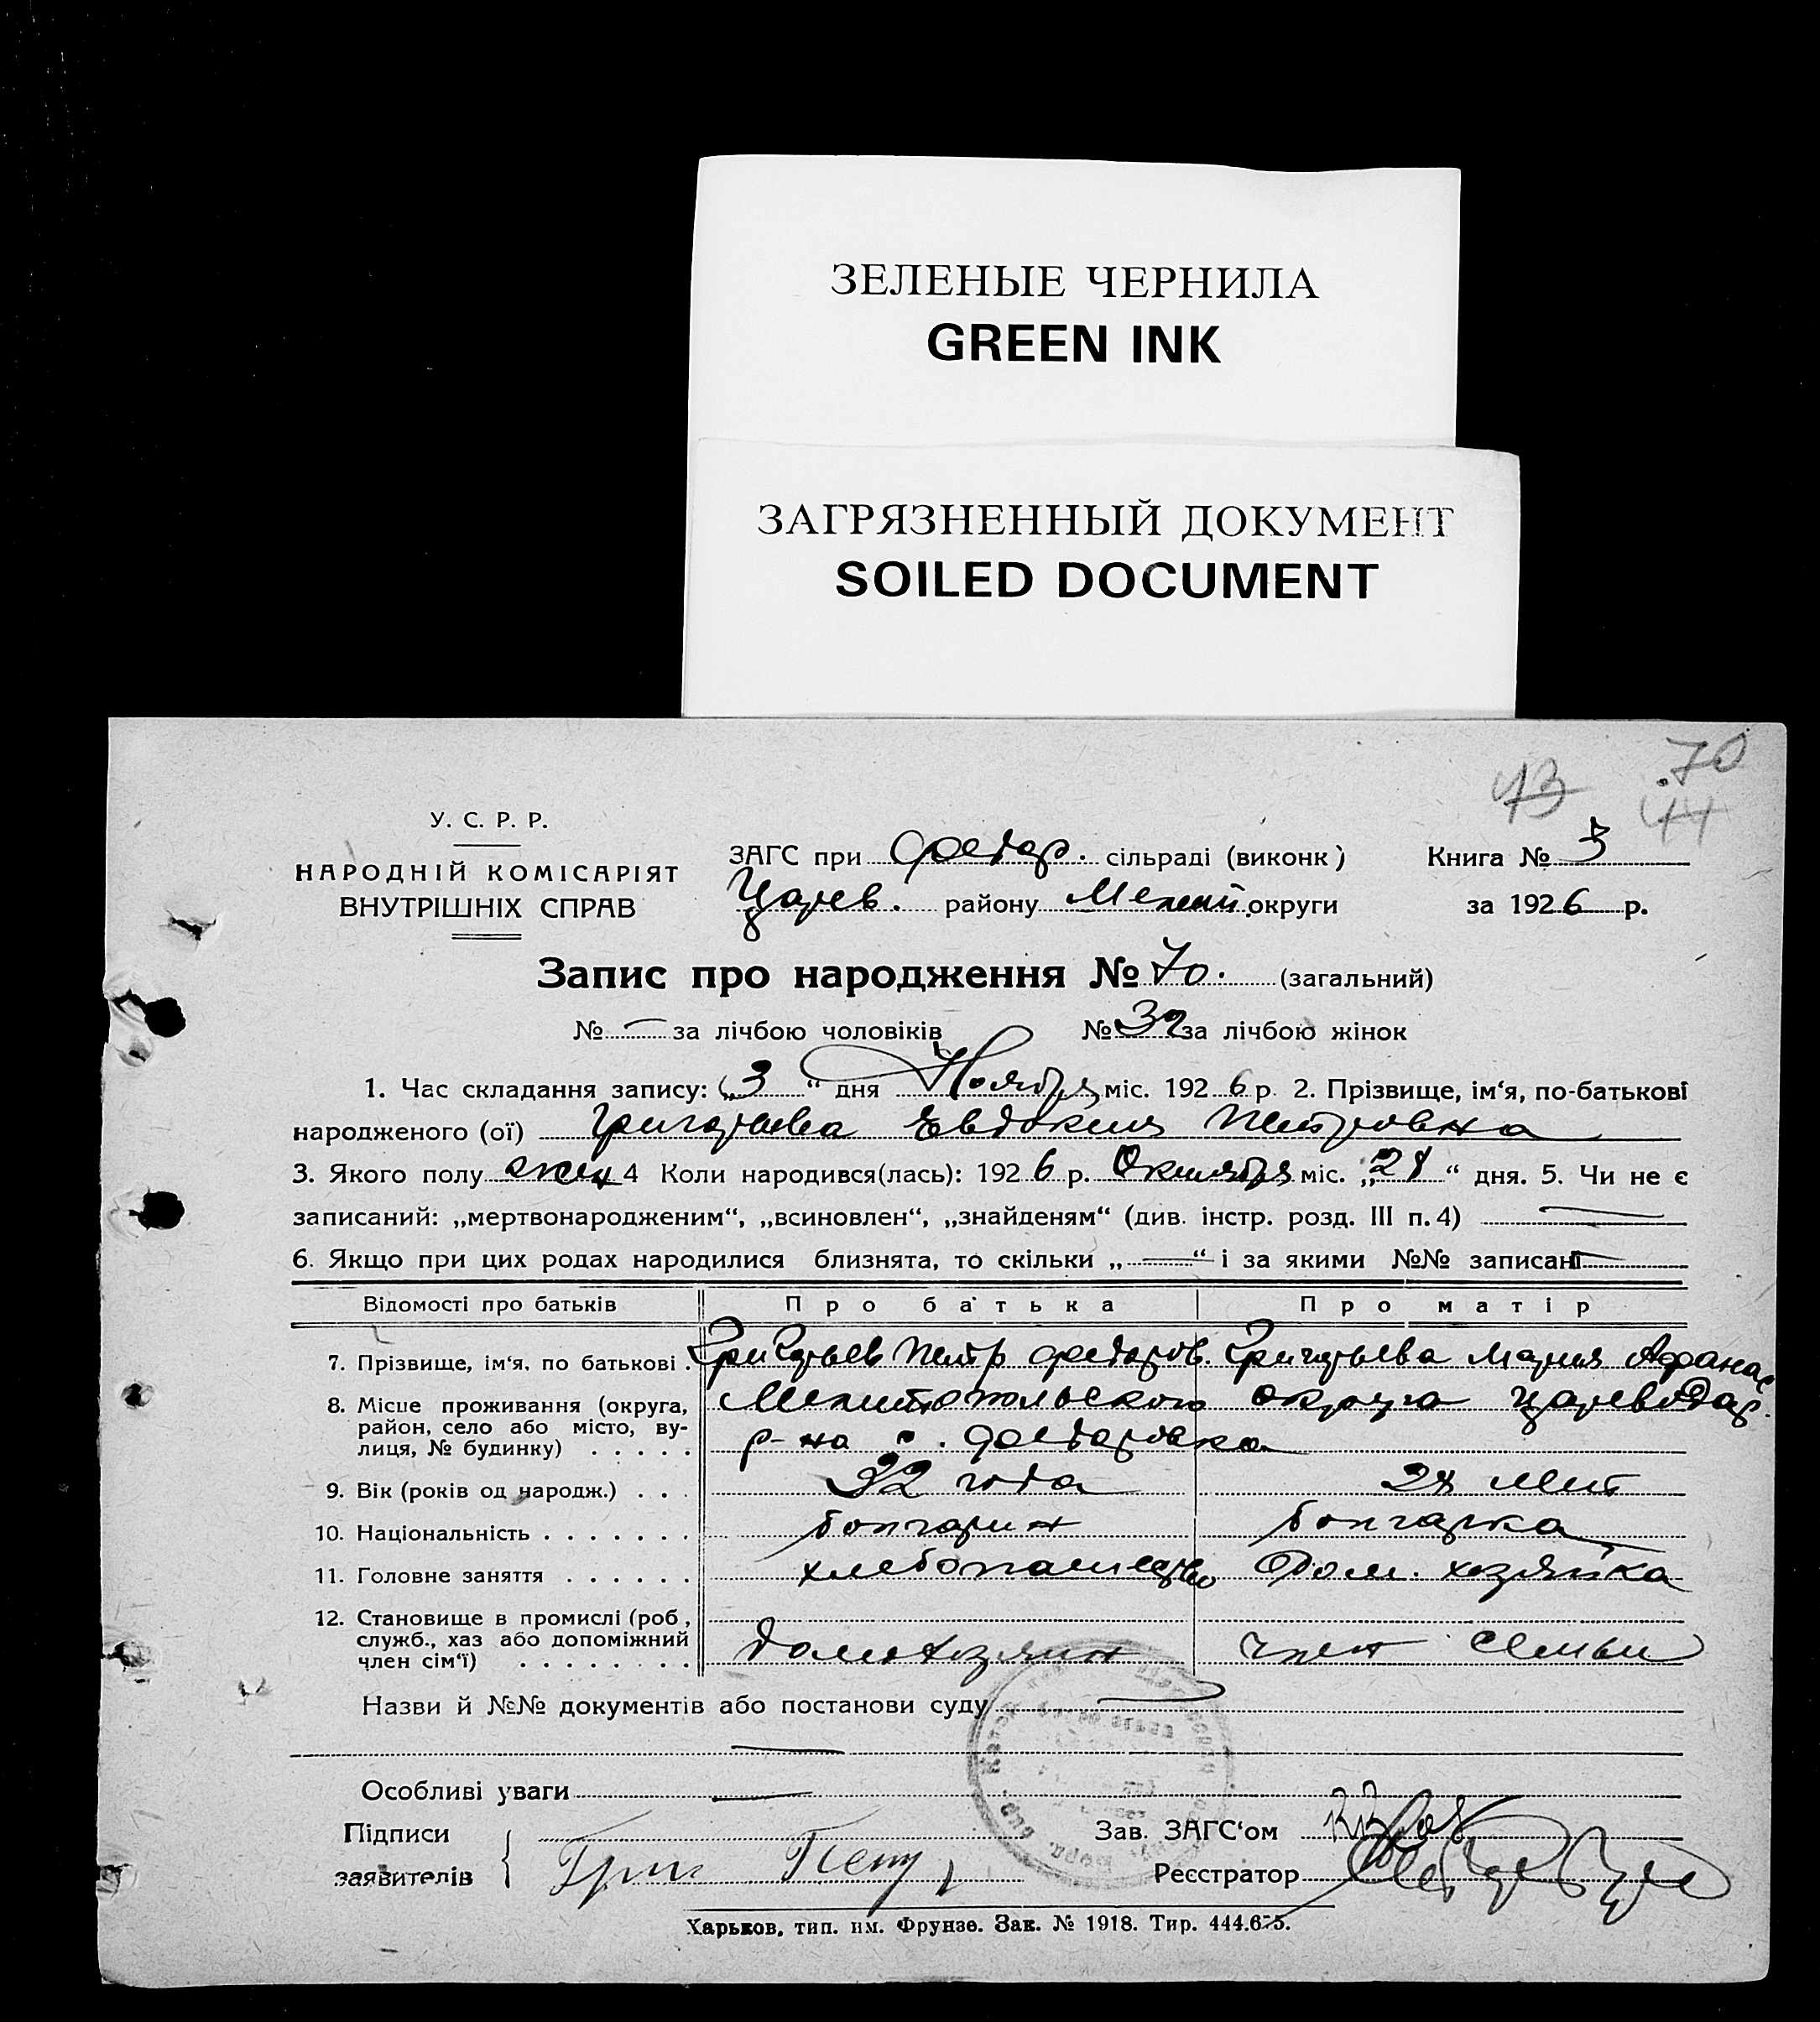 ЗЕЛЕНЫЕ ЧЕРНИЛА
GREEN INK
ЗАГРЯЗНЕННЫЙ ДОКУМЕНТ
SOILED DOCUMENT
43 70
44
У. С. Р. Р.
НАРОДНІЙ КОМІСАРІЯТ
ВНУТРІШНІХ СПРАВ
ЗАГС при Федор. сільраді (виконк) Книга № 5
Царев. району Мелит. округи за 1926 р.
Запис про народження № 70. (загальний)
№ — за лічбою чоловіків № 32 за лічбою жінок
1. Час складання запису: „3“ дня Ноября міс. 1926 р. 2. Прізвище, ім‘я, по-батькові
народженого (ої) Григорьева Евдокия Петровна
3. Якого полу жен 4 Коли народився(лась): 1926 р. Октября міс. „28“ дня. 5. Чи не є
записаний: „мертвонародженим“, „всиновлен“, „знайденям“ (див. інстр. розд. III п. 4) —
6. Якщо при цих родах народилися близнята, то скільки „—“ і за якими №№ записані —
Відомості про батьків Про батька Про матір
7. Прізвище, ім‘я, по батькові . Григорьев Петр Федоров. Григорьева Мария Афанас
8. Місце проживання (округа, район, село або місто, вулиця, № будинку) . . . . . Мелитопольского округа Цареводар.
р-на с. Федоровка
9. Вік (років од народж.) . . . 32 года 28 лет
10. Національність . . . . . . . болгарин болгарка
11. Головне заняття . . . . . . хлебопашество Дом. хозяйка
12. Становище в промислі (роб., служб., хаз або допоміжний член сім‘ї) . . . . . . . . домохозяин член семьи
Назви й №№ документів або постанови суду —
—
Особливі уваги —
Підписи Зав. ЗАГС‘ом
заявителів { Григ Петр Реєстратор
Харьков, тип. им. Фрунзе. Зак. № 1918. Тир. 444.675.